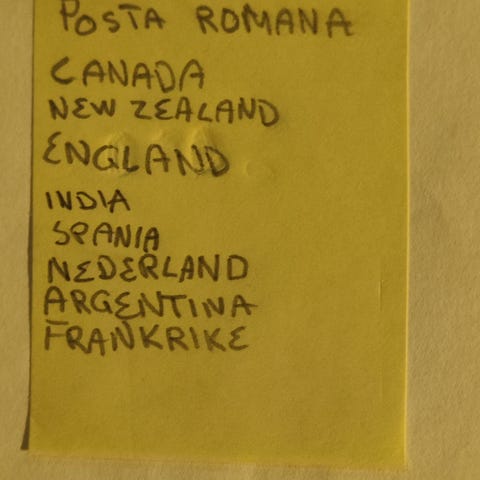 POSTA ROMANA
CANADA
NEW ZEALAND
ENGLAND
INDIA
SPANIA
NEDERLAND
ARGENTINA
FRANKRIKE